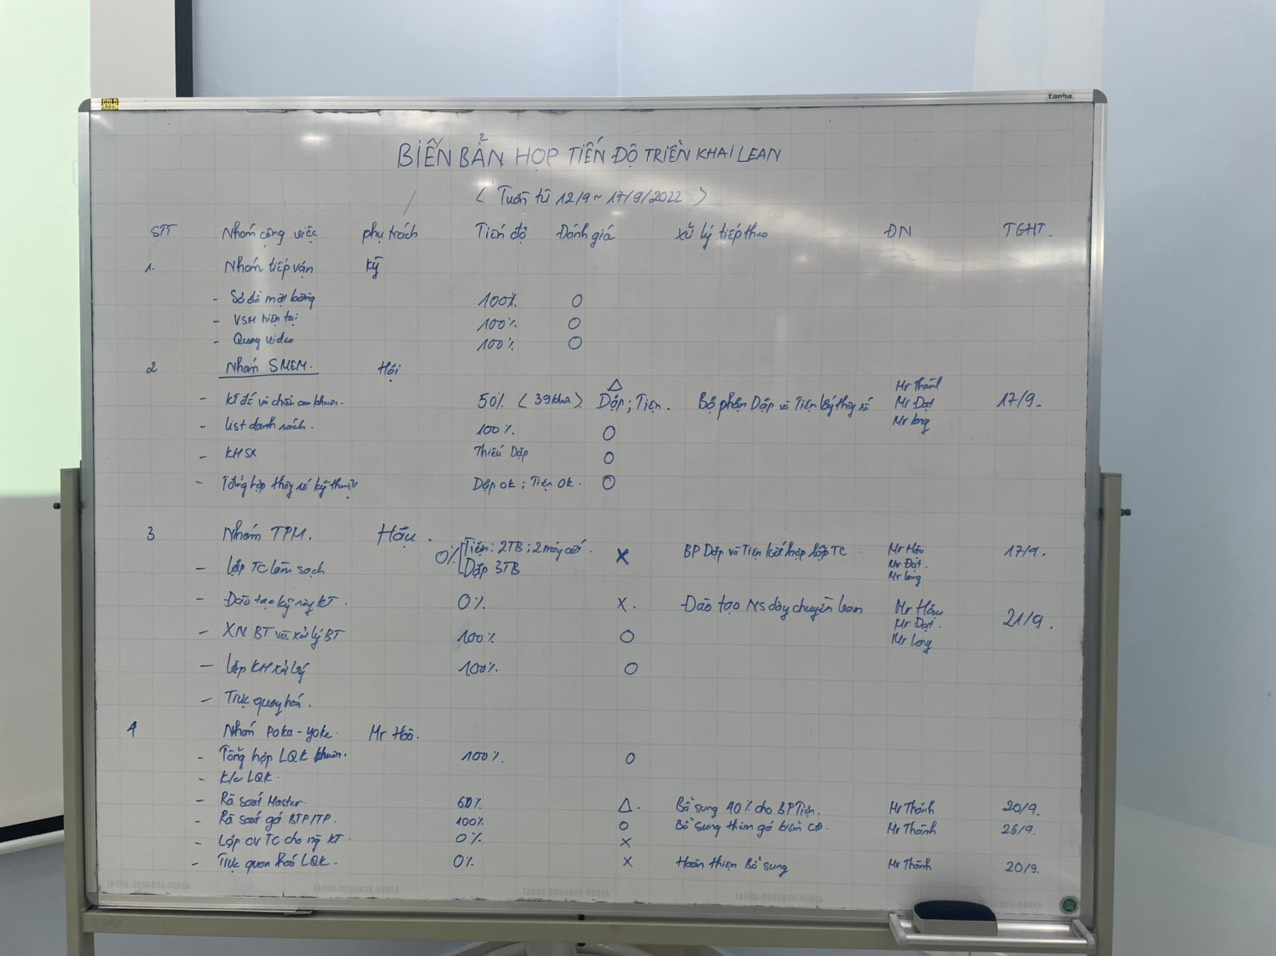 GOLD
tanha
BIÊN BẢN HỌP TIẾN ĐỘ TRIỂN KHAI LEAN
( Tuần từ 12/9 ~ 17/9/2022 )
STT Nhóm công việc phụ trách Tiến độ Đánh giá Xử lý tiếp theo ĐN TGHT.
1. Nhóm tiếp vận Kỹ
- Sơ đồ mặt bằng 100% O
- VSM hiện tại 100% O
- Quay video 100% O
2 Nhóm SMEM. Hội
- Kệ để và chiều cao khuôn. 50% ( 39 khuôn ) Δ Dập ; Tiện. Bộ phận Dập và Tiện Mr Thành Mr Đạt Mr Long 17/9.
- List danh sách. 100% O
- KHSX Thiếu Dập O
- Tổng hợp thông số kỹ thuật Dập ok ; Tiện ok. O
3 Nhóm TPM. Hậu.
- Lập TC làm sạch 0% Tiện: 2TB ; 2 máy Dập 3TB X BP Dập và Tiện kết hợp lập TC Mr Hậu Mr Đạt. Mr Long 17/9.
- Đào tạo KT. 0% X. Đào tạo NS dây chuyền lean Mr Hậu Mr Đạt. Mr Long 21/9.
- XN BT và xử lý BT 100% O
- Lập KH xử lý 100% O
- Trực quan hoá.
4 Nhóm Poka-yoke. Mr Hoà.
- Tổng hợp LQK khuôn. 100% O
- K/c LQK.
- Rà soát Master 60% Δ. Bổ sung 40% cho BP Tiện. Mr Thành 20/9.
- Rà soát gá BTP/TP. 100% O Bổ sung thêm gá CĐ. Mr Thành 26/9.
- Lập CV TC cho KT 0% X
- Trực quan hoá LQK. 0% X Hoàn thiện bổ sung Mr Thành 20/9.